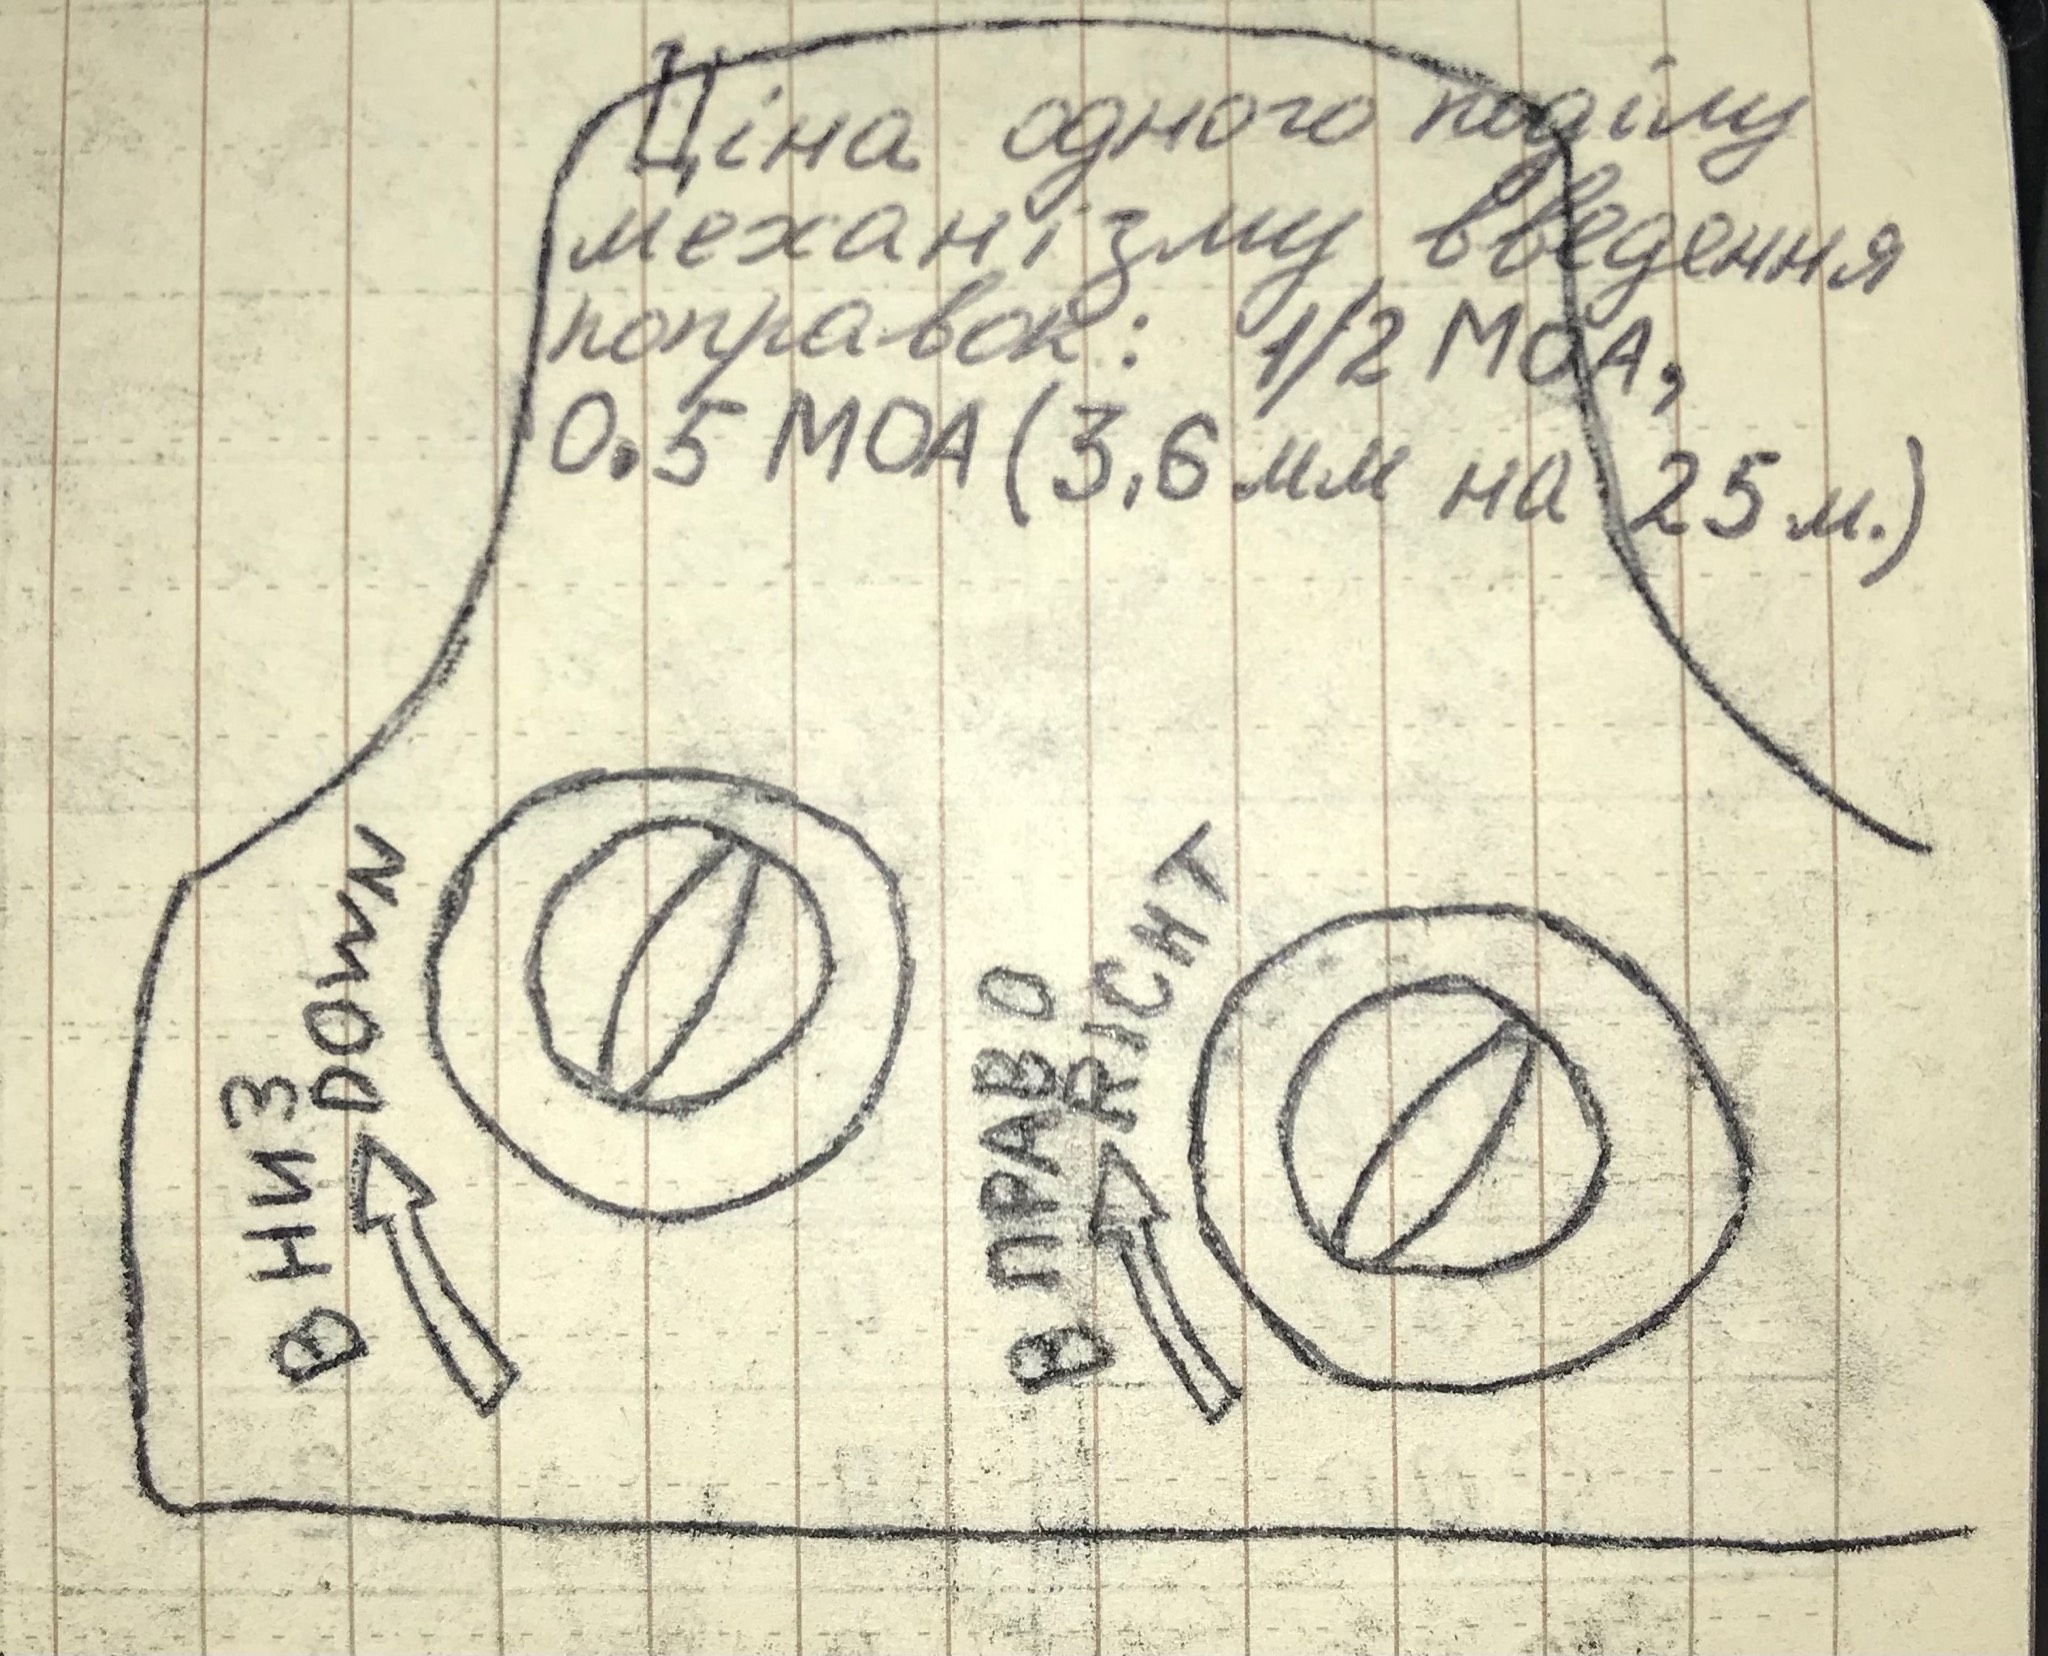 Ціна одного поділу
механізму введення
поправок: 1/2 МОА,
0.5 МОА (3,6 мм на 25 м.)
В НИЗ
DOWN
В ПРАВО
RIGHT